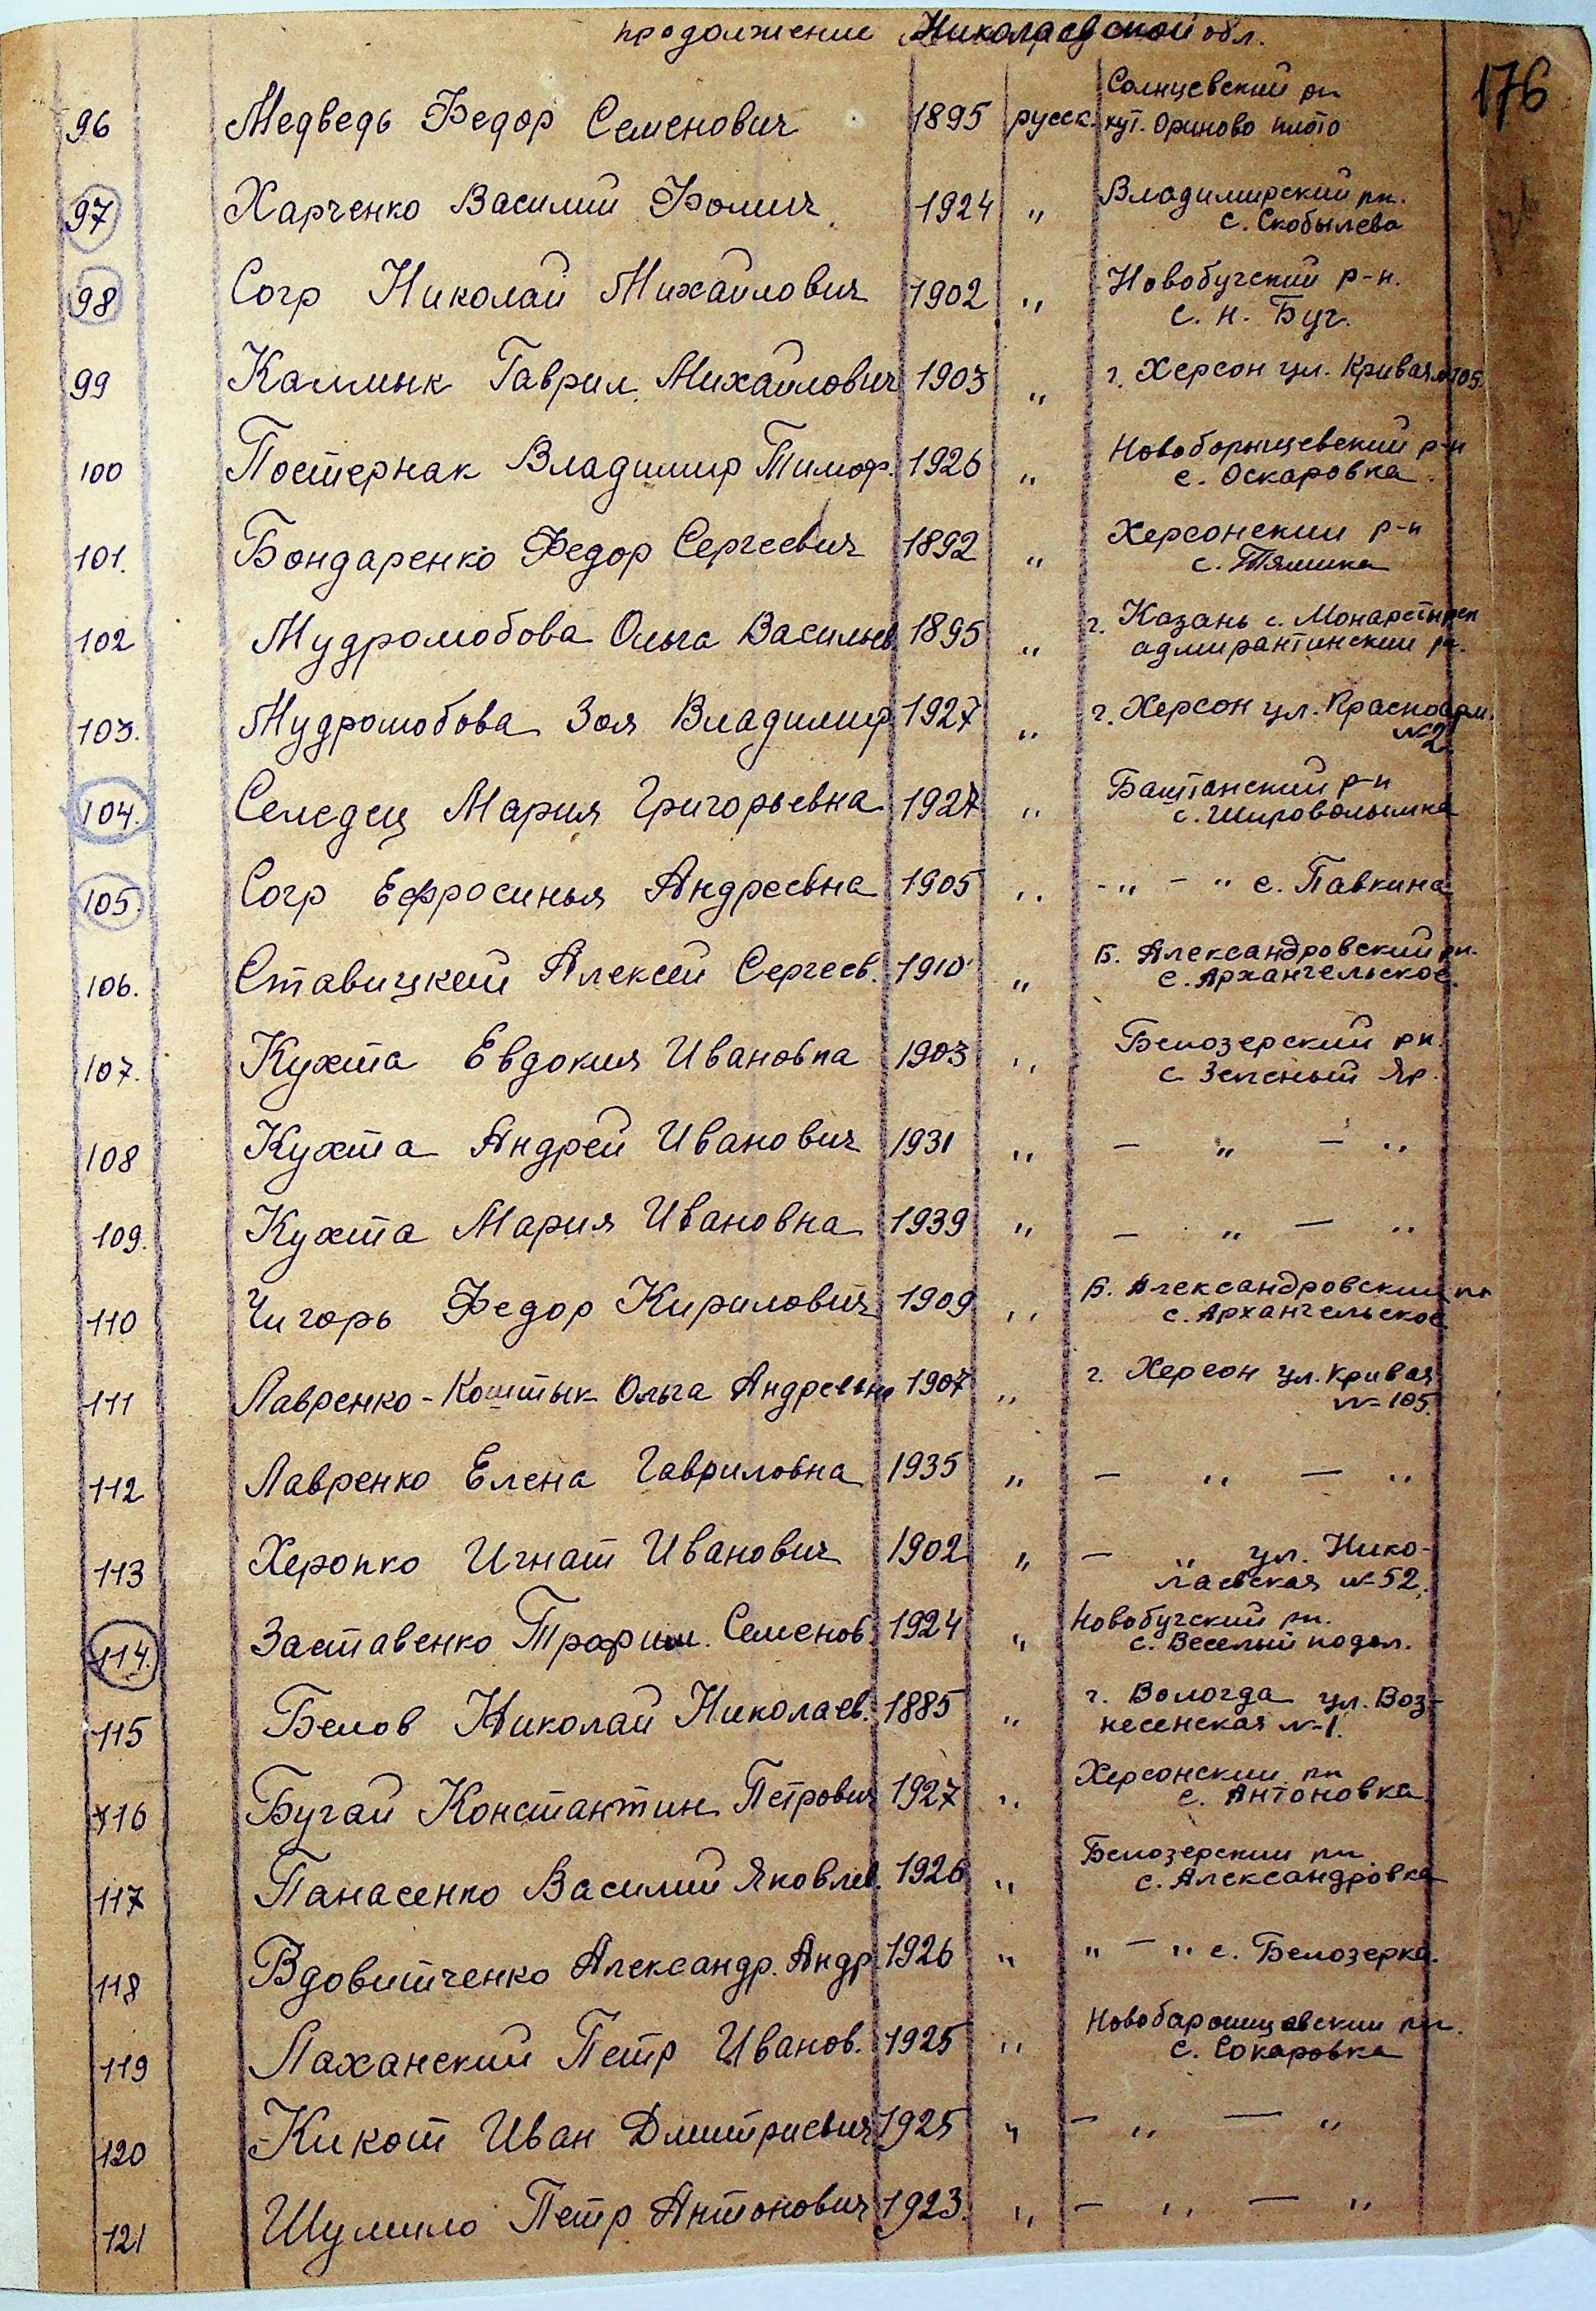 продолжение Николаевской обл.
176
96 Медведь Федор Семенович 1895 русск. Солнцевский рн
хут. Ориново плото
97 Харченко Василий Фомич 1924 " Владимирский рн.
с. Скобылева
98 Согр Николай Михайлович 1902 " Новобугский р-н.
с. Н. Буг.
99 Калмык Гаврил. Михайлович 1903 " г. Херсон ул. Кривая №105.
100 Постернак Владимир Тимоф. 1926 " Новоборищевский р-н
с. Оскаровка.
101. Бондаренко Федор Сергеевич 1892 " Херсонский р-н
с. Тямика
102 Мудролюбова Ольга Васильев. 1895 " г. Казань с. Монарстырск
адмирантинский рн.
103. Мудролюбова Зоя Владимир. 1927 " г. Херсон ул. Красноарм.
№2
104. Селедец Мария Григорьевна 1927 " Баштанский р-н
с.
105. Согр Ефросинья Андреевна 1905 " - " - " с. Павкина
106. Ставицкий Алексей Сергеев. 1910 " Б. Александровский рн.
с. Архангельское.
107. Кухта Евдокия Ивановна 1903 " Белозерский рн.
с Зеленый Яр.
108 Кухта Андрей Иванович 1931 " - " - "
109. Кухта Мария Ивановна 1939 " - " - "
110 Чигорь Федор Кирилович 1909 " Б. Александровский рн
с. Архангельское
111 Лавренко-Коштык Ольга Андреевна 1907 " г. Херсон ул. Кривая
№ 105.
112 Лавренко Елена Гавриловна 1935 " - " - "
113 Херопко Игнат Иванович 1902 " - " ул. Нико-
лаевская № 52.
114. Заставенко Трофим. Семенов. 1924 " Новобугский рн.
с. Веселый подол.
115 Белов Николай Николаев. 1885 " г. Вологда ул. Воз-
несенская №1.
116 Бугай Константин Петрович 1927 " Херсонский рн
с. Антоновка
117 Панасенко Василий Яковлев. 1926 " Белозерский рн
с. Александровка
118 Вдовитченко Александр. Андр. 1926 " " - " с. Белозерка.
119 Лаханский Петр Иванов. 1925 " Новобарошцовский рн.
с. Сокаровка
120 Кикот Иван Дмитриевич 1925 " - " - "
121 Шумило Петр Антонович 1923. " - " - "